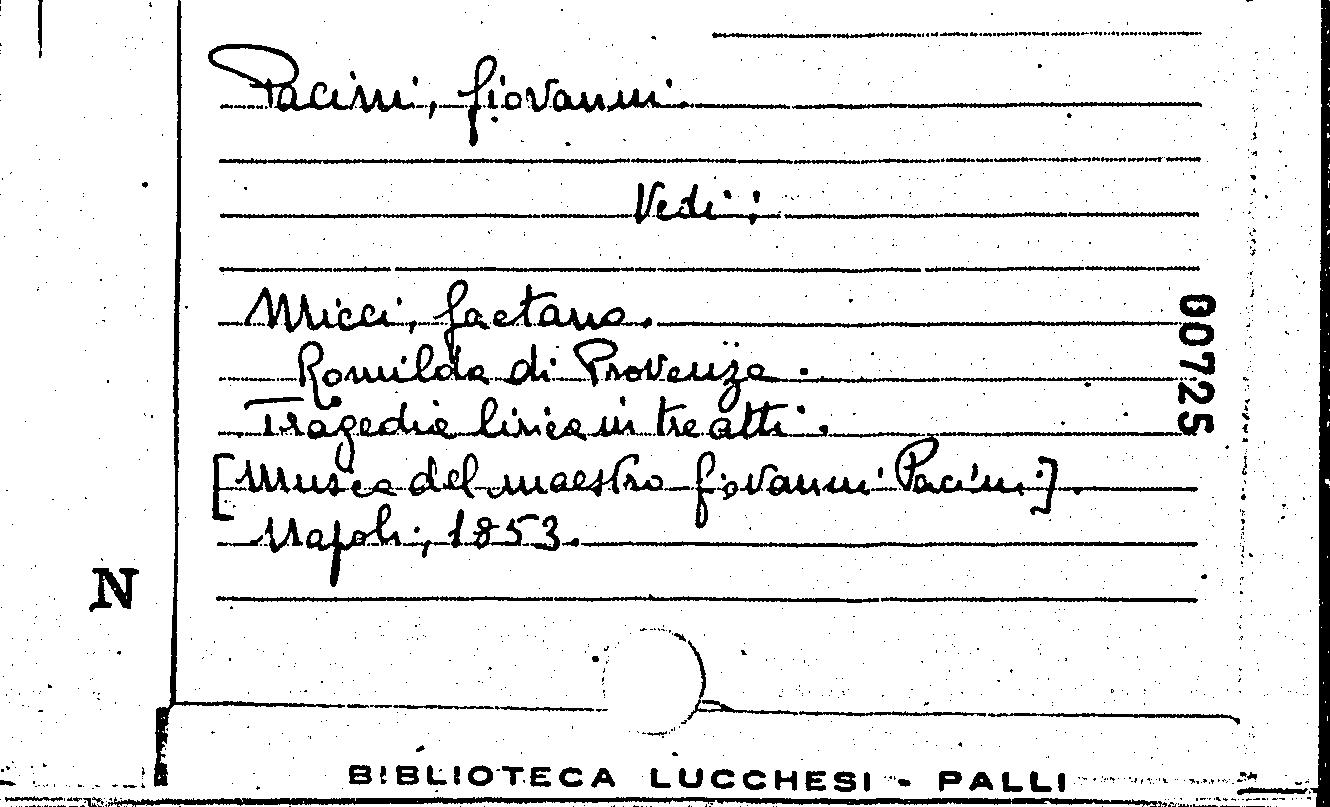 Pacini, Giovanni.
Vedi:
Micci, Gaetano.
Romilda di Provenza.
Tragedia lirica in tre atti.
[Musica del maestro Giovanni Pacini].
Napoli, 1853.
00725
N
BIBLIOTECA LUCCHESI - PALLI